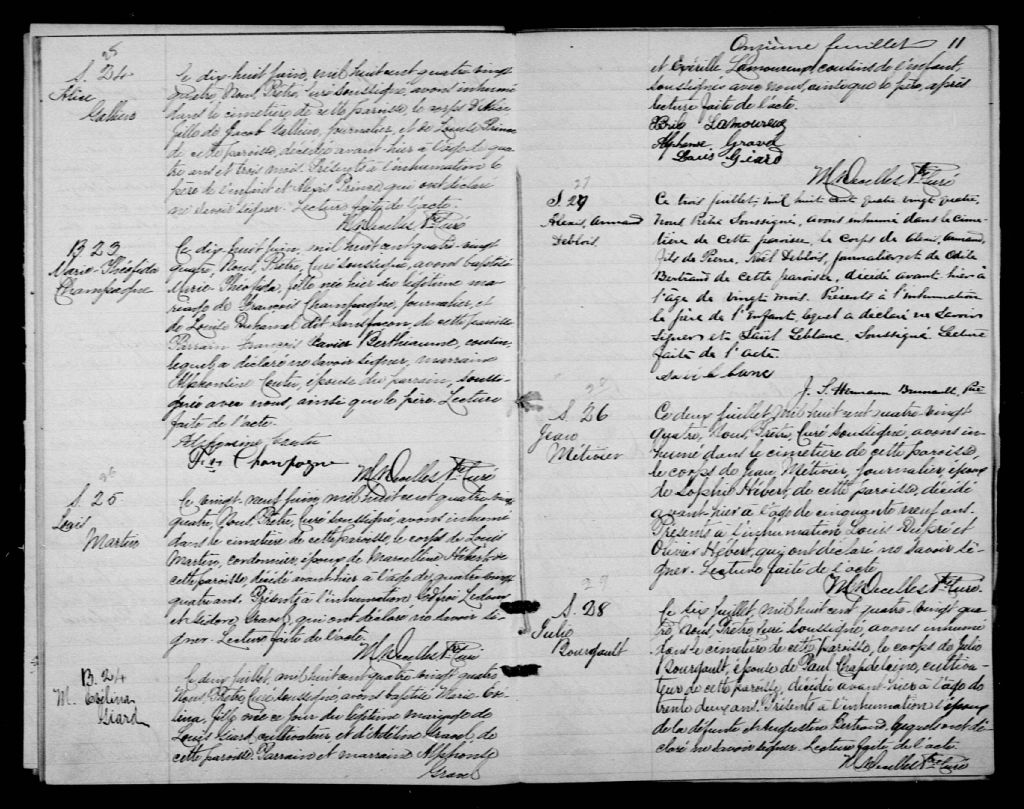 S. 24
Alice
Le dix-huit juin, mil huit cent quatre-vingt
quatre, Nous, Prêtre, Curé soussigné, avons inhumé
dans le cimetière de cette paroisse, le corps d'Alice
fille de Jacob, journalier, et de Louise Prince
de cette paroisse, décédée avant-hier à l'âge de quatre
ans et trois mois. Présents à l'inhumation le
père de l'enfant et Alexis Prince qui ont déclaré
ne savoir signer. Lecture faite de l'acte.
Ptre Curé
B 23
Marie-Théofida
Champagne
Le dix-huit juin, mil huit cent quatre-vingt
quatre, Nous, Prêtre, Curé soussigné, avons baptisé
Marie Théofida, fille née hier du légitime ma-
riage de François Champagne, journalier, et
de Louise Duhamel dit Sansfaçon, de cette paroisse
Parrain François Xavier Berthiaume, cousin,
lequel a déclaré ne savoir signer, marraine
Alphonsine, épouse du parrain, soussi-
gnée avec nous, ainsi que le père. Lecture
faite de l'acte.
Alphonsine
Champagne
Ptre Curé
26
S. 25
Louis
Martin
Le vingt-neuf juin, mil huit cent quatre-vingt
quatre, Nous, Prêtre, Curé soussigné, avons inhumé
dans le cimetière de cette paroisse, le corps de Louis
Martin, cordonnier, époux de Marcelline Hébert de
cette paroisse, décédé avant-hier à l'âge de quatre-vingt
quatre ans. Présents à l'inhumation
et Isidore Gravel, qui ont déclaré ne savoir si-
gner. Lecture faite de l'acte.
Ptre Curé
B. 24
M. Exélina
Giard
Le deux juillet, mil huit cent quatre-vingt quatre
Nous, Prêtre, Curé soussigné, avons baptisé Marie Exé-
lina, fille née ce jour du légitime mariage de
Louis Giard, cultivateur et d'Adéline Gravel de
cette paroisse. Parrain et marraine Alphonse
Gravel
Onzième feuillet 11
et Lamoureux cousins de l'enfant,
soussignés avec nous, ainsi que le père, après
lecture faite de l'acte.
Lamoureux
Alphonse Gravel
Louis Giard
Ptre Curé
27
S. 27
Alexis, Armand
Deblois.
Ce trois juillet, mil huit cent quatre vingt quatre,
Nous Prêtre Soussigné, avons inhumé dans le cime-
tière de cette paroisse, le corps de Alexis, Armand,
fils de Pierre, Noël Deblois, journalier, et de Odile
Bertrand de cette paroisse, décédé avant-hier à
l'âge de vingt mois. Présents à l'inhumation
le père de l'Enfant, lequel a déclaré ne savoir
signer et Leblanc, Soussigné. Lecture
faite de l'acte.
J. S. Hermann Brunault, Ptre
S. 26
Jean
Métivier
Ce deux juillet, mil huit cent quatre-vingt
quatre, Nous, Prêtre, Curé soussigné, avons in-
humé dans le cimetière de cette paroisse,
le corps de Jean Métivier, journalier époux
de Sophie Hébert, de cette paroisse, décédé
avant-hier à l'âge de cinquante neuf ans.
Présents à l'inhumation Louis Dupré et
Olivier Hébert, qui ont déclaré ne savoir si-
gner. Lecture faite de l'acte.
Ptre Curé.
S. 28
Julie
Bourgault
Le six juillet, mil huit cent quatre-vingt qua-
tre, Nous, Prêtre, Curé soussigné, avons inhumé
dans le cimetière de cette paroisse, le corps de Julie
Bourgault, épouse de Paul Chapdelaine, cultiva-
teur de cette paroisse, décédée avant-hier à l'âge de
trente deux ans. Présents à l'inhumation l'époux
de la défunte et Augustin Bertrand, lesquels ont dé-
claré ne savoir signer. Lecture faite de l'acte.
Ptre Curé